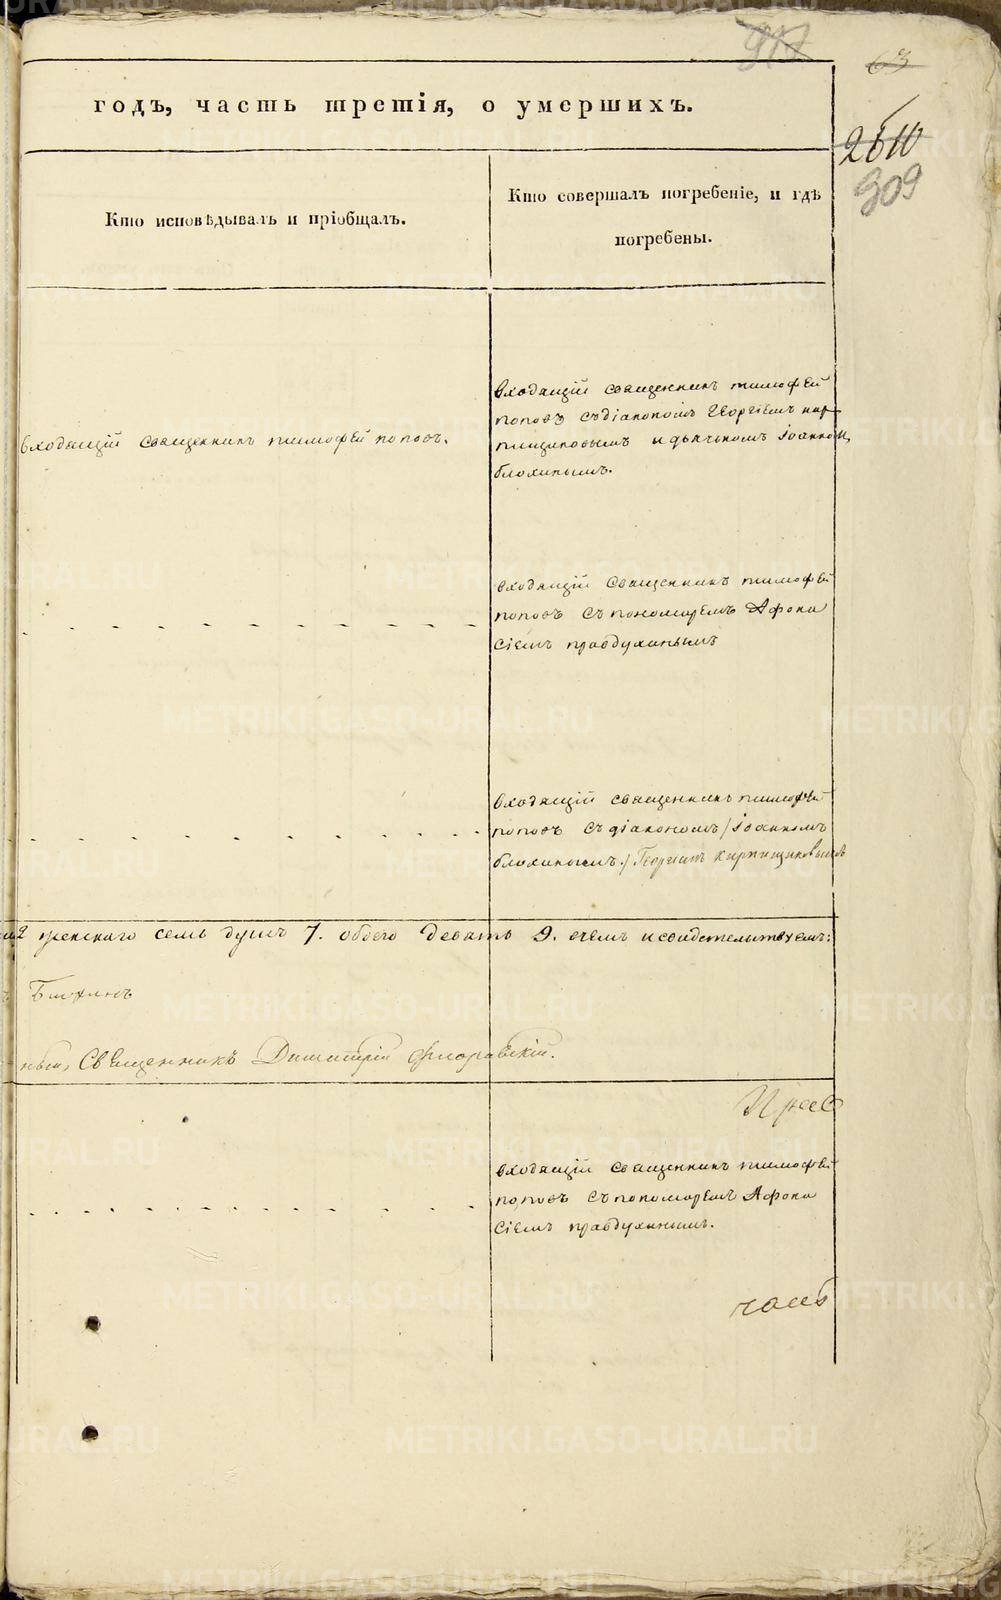 63
309
годъ, часть третія, о умершихъ.
Кто исповѣдывалъ и пріобщалъ.
Кто совершалъ погребеніе, и гдѣ
погребены.
входящій священникъ тимофей поповъ.
входящій священникъ тимофей
поповъ съ діакономъ Георгіемъ кир-
пищиковымъ и дьячкомъ Іоанномъ
блохинымъ.
входящій священникъ тимофей
поповъ съ пономаремъ Афона
сіемъ правдухинымъ
входящій священникъ тимофей
поповъ съ діакономъ / Іоанномъ
блохинымъ. / Георгіемъ кирпищиковымъ
женскаго семь душъ 7. обоего девять 9. въ чемъ и свидетельствуемъ:
Блохинъ
ный, Священникъ Димитрій Флоровскій.
входящій священникъ тимофей
поповъ съ пономаремъ Афона
сіемъ правдухинымъ.
часть
METRIKI.GASO-URAL.RU